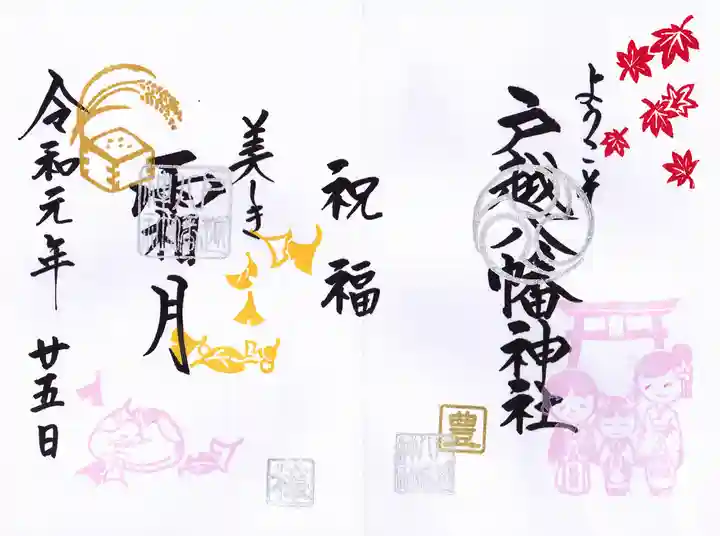 ようこそ
戸越八幡神社
豊
祝福
美しき
霜月
令和元年 廿五日